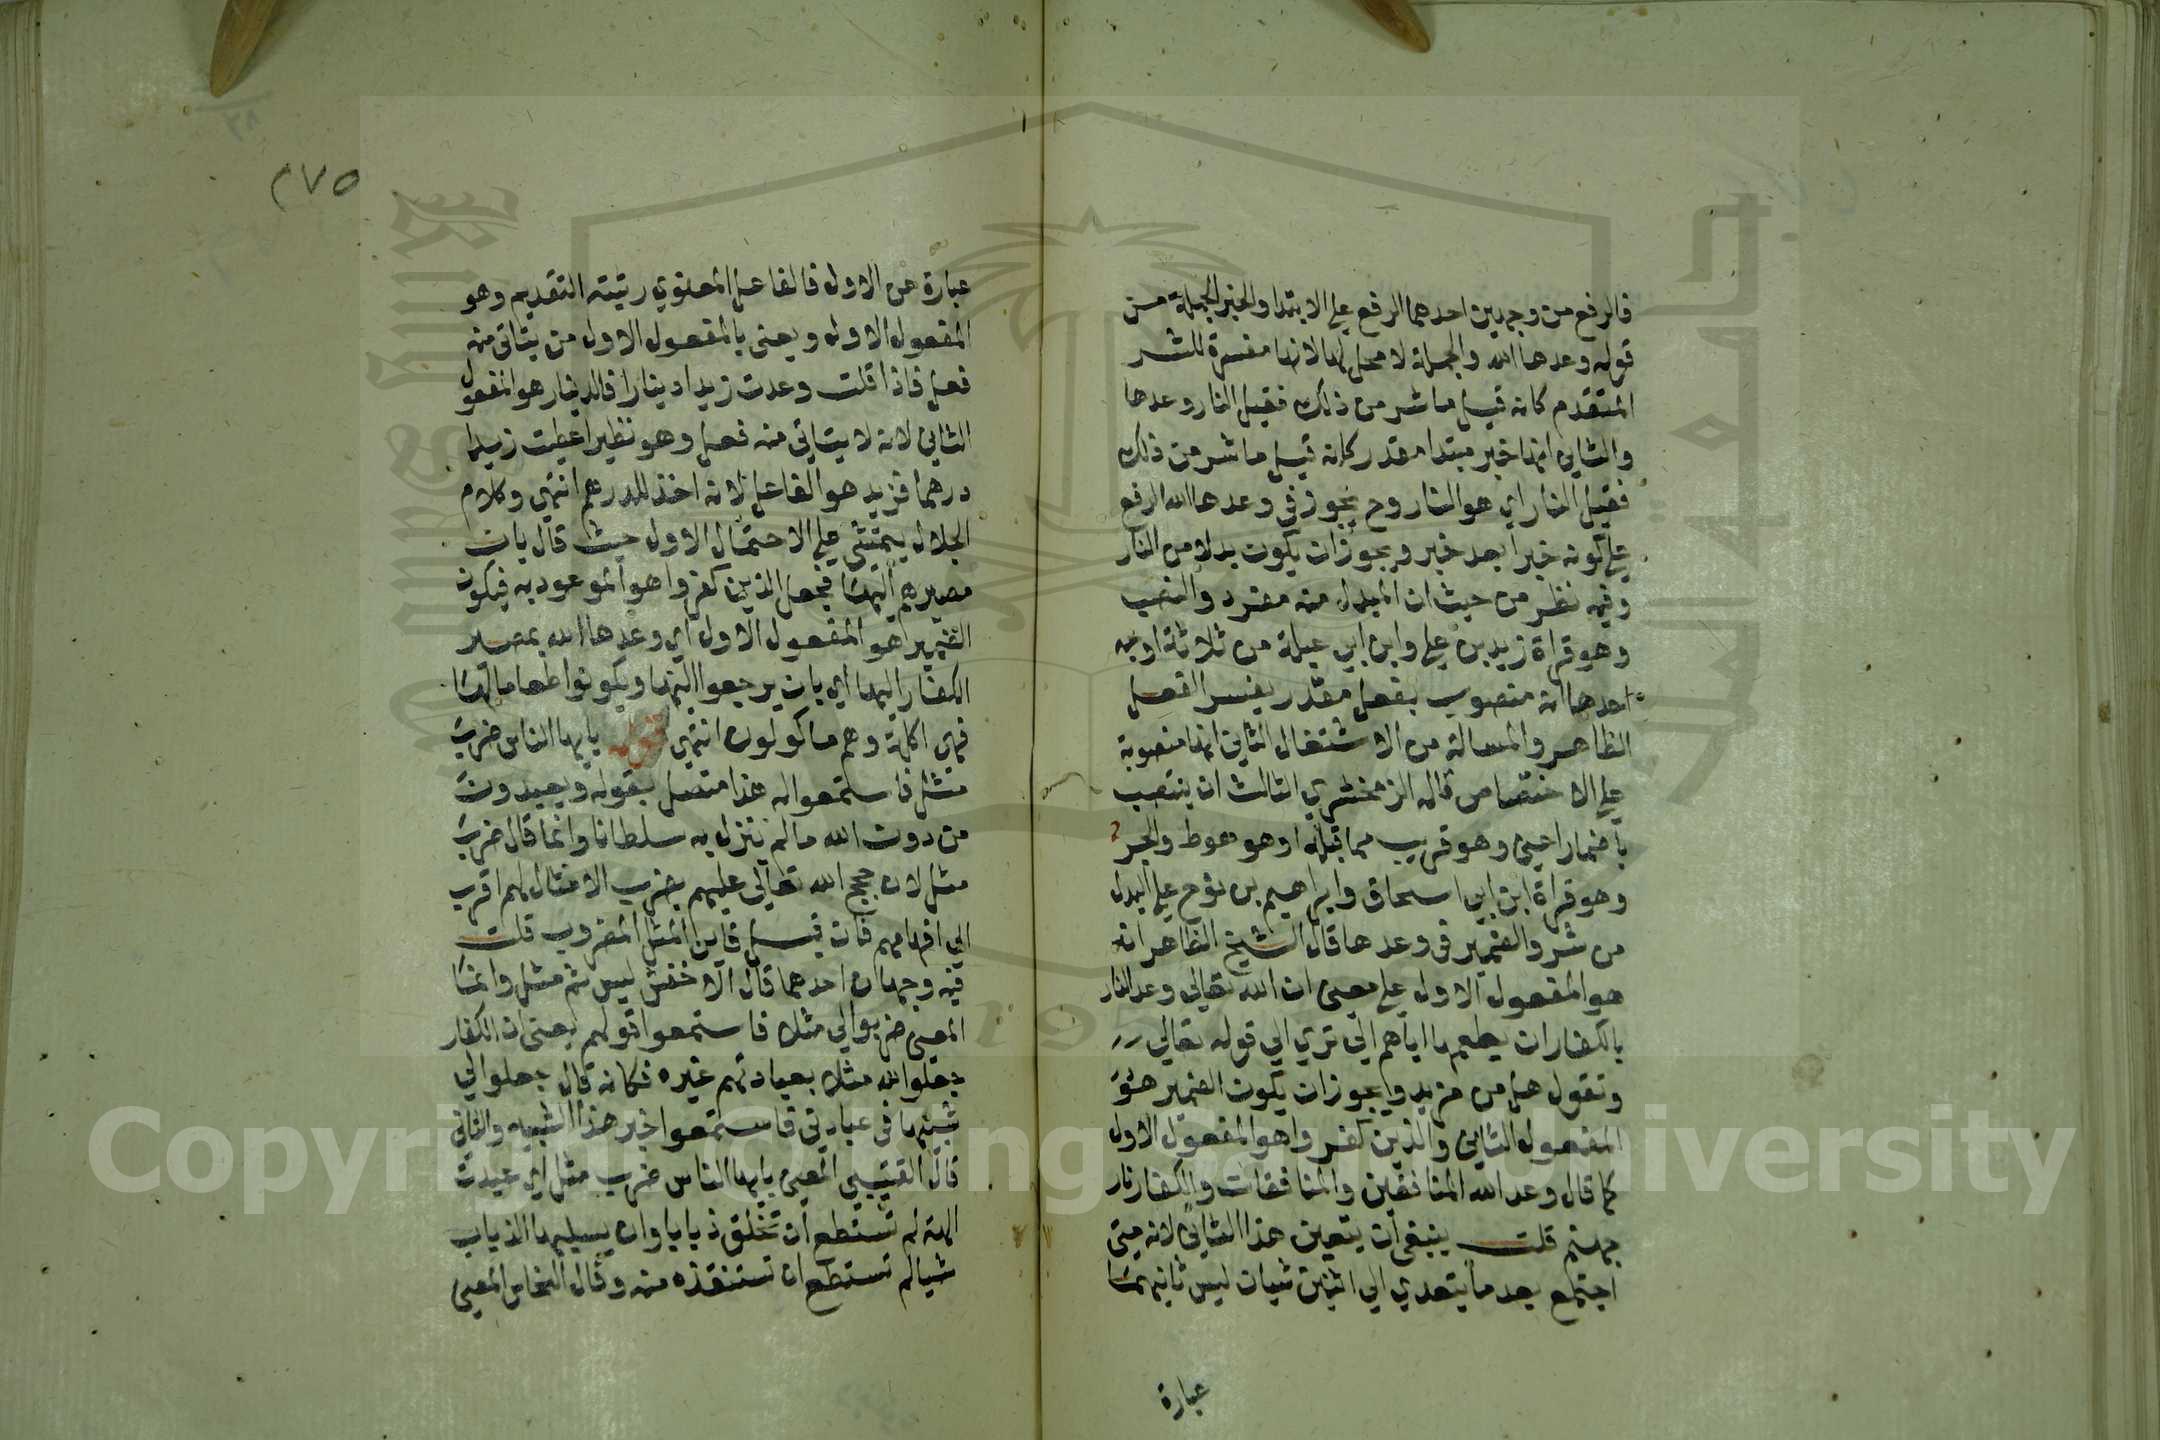 فالرفع من وجهين احدهما الرفع علي الابتدا والخبر الجملة من
قوله وعدها الله والجملة لا محل لها لانها مفسرة للشر
المتقدم كانه قيل ما شر من ذلك فقيل النار وعدها
والثاني انها خبر مبتدا مقدر كانه قيل ما شر من ذلك
فقيل النار اي هو النار وح يجوز في وعدها الله الرفع
علي كونه خبرا بعد خبر ويجوز ان يكون بدلا من النار
وفيه نظر من حيث ان المبدل منه مفرد والنصب
وهو قراة زيد بن علي وابن ابي عبلة من ثلاثة اوجه
احدها انه منصوب بفعل مقدر يفسر الفعل
الظاهر والمسالة من الاشتغال الثاني انها منصوبة
علي الاختصاص قاله الزمخشري الثالث ان ينتصب
باضمار اعني وهو قريب مما قبله او هو هو ط والجر
وهو قراة ابن ابي اسحاق وابراهيم بن نوح علي البدل
من شر والضمير في وعدها قال الشيخ الظاهر انه
هو المفعول الاول علي معني ان الله تعالي وعد النار
بالكفار ان يطعمها اياهم الي تري الي قوله تعالي
وتقول هل من مزيد ويجوز ان يكون الضمير هو
المفعول الثاني والذين كفروا هو المفعول الاول
كما قال وعد الله المنافقين والمنافقات والكفار نار
جهنم قلت ينبغي ان يتعين هذا الثاني لانه متي
اجتمع بعد ما يتعدي الي اثنين شيان ليس ثانيهما
عبارة
٢٧٥
عبارة عن الاول فالفاعل المعنوي رتبته التقديم وهو
المفعول الاول ويعني بالمفعول الاول من يتاتي منه
فعل فاذا قلت وعدت زيدا دينارا فالدينار هو المفعول
الثاني لانه لا يتاتي منه فعل وهو نظير اعطيت زيدا
درهما فزيد هو الفاعل لانه اخذ للدرهم انتهي وكلام
الجلال يتمشي علي الاحتمال الاول حيث قال بان
مصيرهم اليها فجعل الذين كفروا هو الموعود به فيكون
الضمير هو المفعول الاول اي وعدها الله بمصير
الكفار اليها اي بان يرجعوا اليها ويكونوا طعاما لها
فهي اكلة وهم ماكولون انتهي قوله يايها الناس ضرب
مثل فاستمعوا له هذا متصل بقوله ويعبدون
من دون الله ما لم ينزل به سلطانا وانما قال ضرب
مثل لان حجج الله تعالي عليهم بضرب الامثال لهم اقرب
الي افهامهم فان قيل فاين المثل المضروب قلت
فيه وجهان احدهما قال الاخفش ليس ثم مثل وانما
المعني ضربوا لي مثلا فاستمعوا قولهم يعني ان الكفار
جعلوا لله مثلا بعبادتهم غيره فكانه قال جعلوا لي
شبيها في عبادتي فاستمعوا خبر هذا الشبيه والثاني
قال القتيبي المعني يايها الناس ضرب مثل اي عبدت
الهة لم تستطع ان تخلق ذبابا وان يسلبها الذباب
شيا لم تستطع ان تستنقذه منه وقال النحاس المعني
Copyright © King Saud University
1957